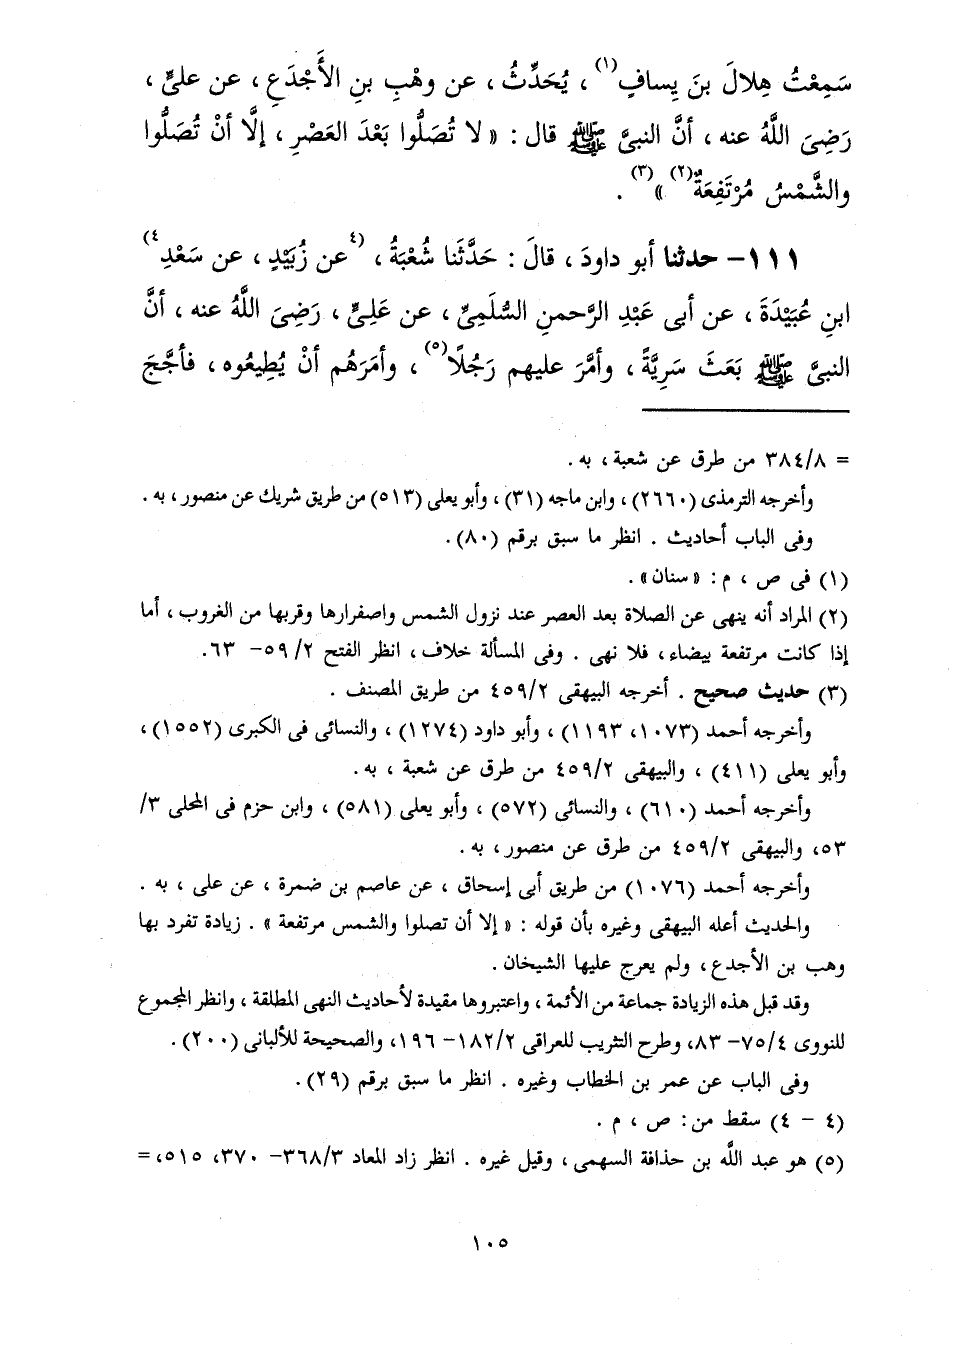 سَمِعْتُ هِلالَ بنَ يِسافٍ(١) ، يُحَدِّثُ ، عن وهْبِ بنِ الأَجْدَعِ ، عن علىٍّ ،
رَضِىَ اللَّهُ عنه ، أنَّ النبىَّ ﷺ قال : « لا تُصَلُّوا بَعْدَ العَصْرِ ، إلَّا أنْ تُصَلُّوا
والشَّمْسُ مُرْتَفِعَةٌ(٢) »(٣) .
١١١- حدثنا أبو داودَ ، قالَ : حَدَّثَنا شُعْبَةُ ، (٤عن زُبَيْدٍ ، عن سَعْدِ٤)
ابنِ عُبَيْدَةَ ، عن أبى عَبْدِ الرَّحمنِ السُّلَمِىِّ ، عن عَلِىٍّ ، رَضِىَ اللَّهُ عنه ، أنَّ
النبىَّ ﷺ بَعَثَ سَرِيَّةً ، وأمَّرَ عليهم رَجُلًا(٥) ، وأمَرَهُم أنْ يُطِيعُوه ، فأجَّجَ
= ٣٨٤/٨ من طرق عن شعبة ، به .
وأخرجه الترمذى (٢٦٦٠) ، وابن ماجه (٣١) ، وأبو يعلى (٥١٣) من طريق شريك عن منصور ، به .
وفى الباب أحاديث . انظر ما سبق برقم (٨٠).
(١) فى ص ، م : « سنان » .
(٢) المراد أنه ينهى عن الصلاة بعد العصر عند نزول الشمس واصفرارها وقربها من الغروب ، أما
إذا كانت مرتفعة بيضاء ، فلا نهى . وفى المسألة خلاف ، انظر الفتح ٥٩/٢ - ٦٣.
(٣) حديث صحيح . أخرجه البيهقى ٤٥٩/٢ من طريق المصنف .
وأخرجه أحمد (١٠٧٣، ١١٩٣) ، وأبو داود (١٢٧٤) ، والنسائى فى الكبرى (١٥٥٢) ،
وأبو يعلى (٤١١) ، والبيهقى ٤٥٩/٢ من طرق عن شعبة ، به .
وأخرجه أحمد (٦١٠) ، والنسائى (٥٧٢) ، وأبو يعلى (٥٨١) ، وابن حزم فى المحلى ٣/
٥٣، والبيهقى ٤٥٩/٢ من طرق عن منصور ، به .
وأخرجه أحمد (١٠٧٦) من طريق أبى إسحاق ، عن عاصم بن ضمرة ، عن على ، به .
والحديث أعله البيهقى وغيره بأن قوله : « إلا أن تصلوا والشمس مرتفعة » . زيادة تفرد بها
وهب بن الأجدع ، ولم يعرج عليها الشيخان .
وقد قبل هذه الزيادة جماعة من الأئمة ، واعتبروها مقيدة لأحاديث النهى المطلقة ، وانظر المجموع
للنووى ٧٥/٤ - ٨٣، وطرح التثريب للعراقى ١٨٢/٢ - ١٩٦، والصحيحة للألبانى (٢٠٠) .
وفى الباب عن عمر بن الخطاب وغيره . انظر ما سبق برقم (٢٩).
(٤ - ٤) سقط من : ص ، م .
(٥) هو عبد اللَّه بن حذافة السهمى ، وقيل غيره . انظر زاد المعاد ٣٦٨/٣ - ٣٧٠، ٥١٥، =
١٠٥